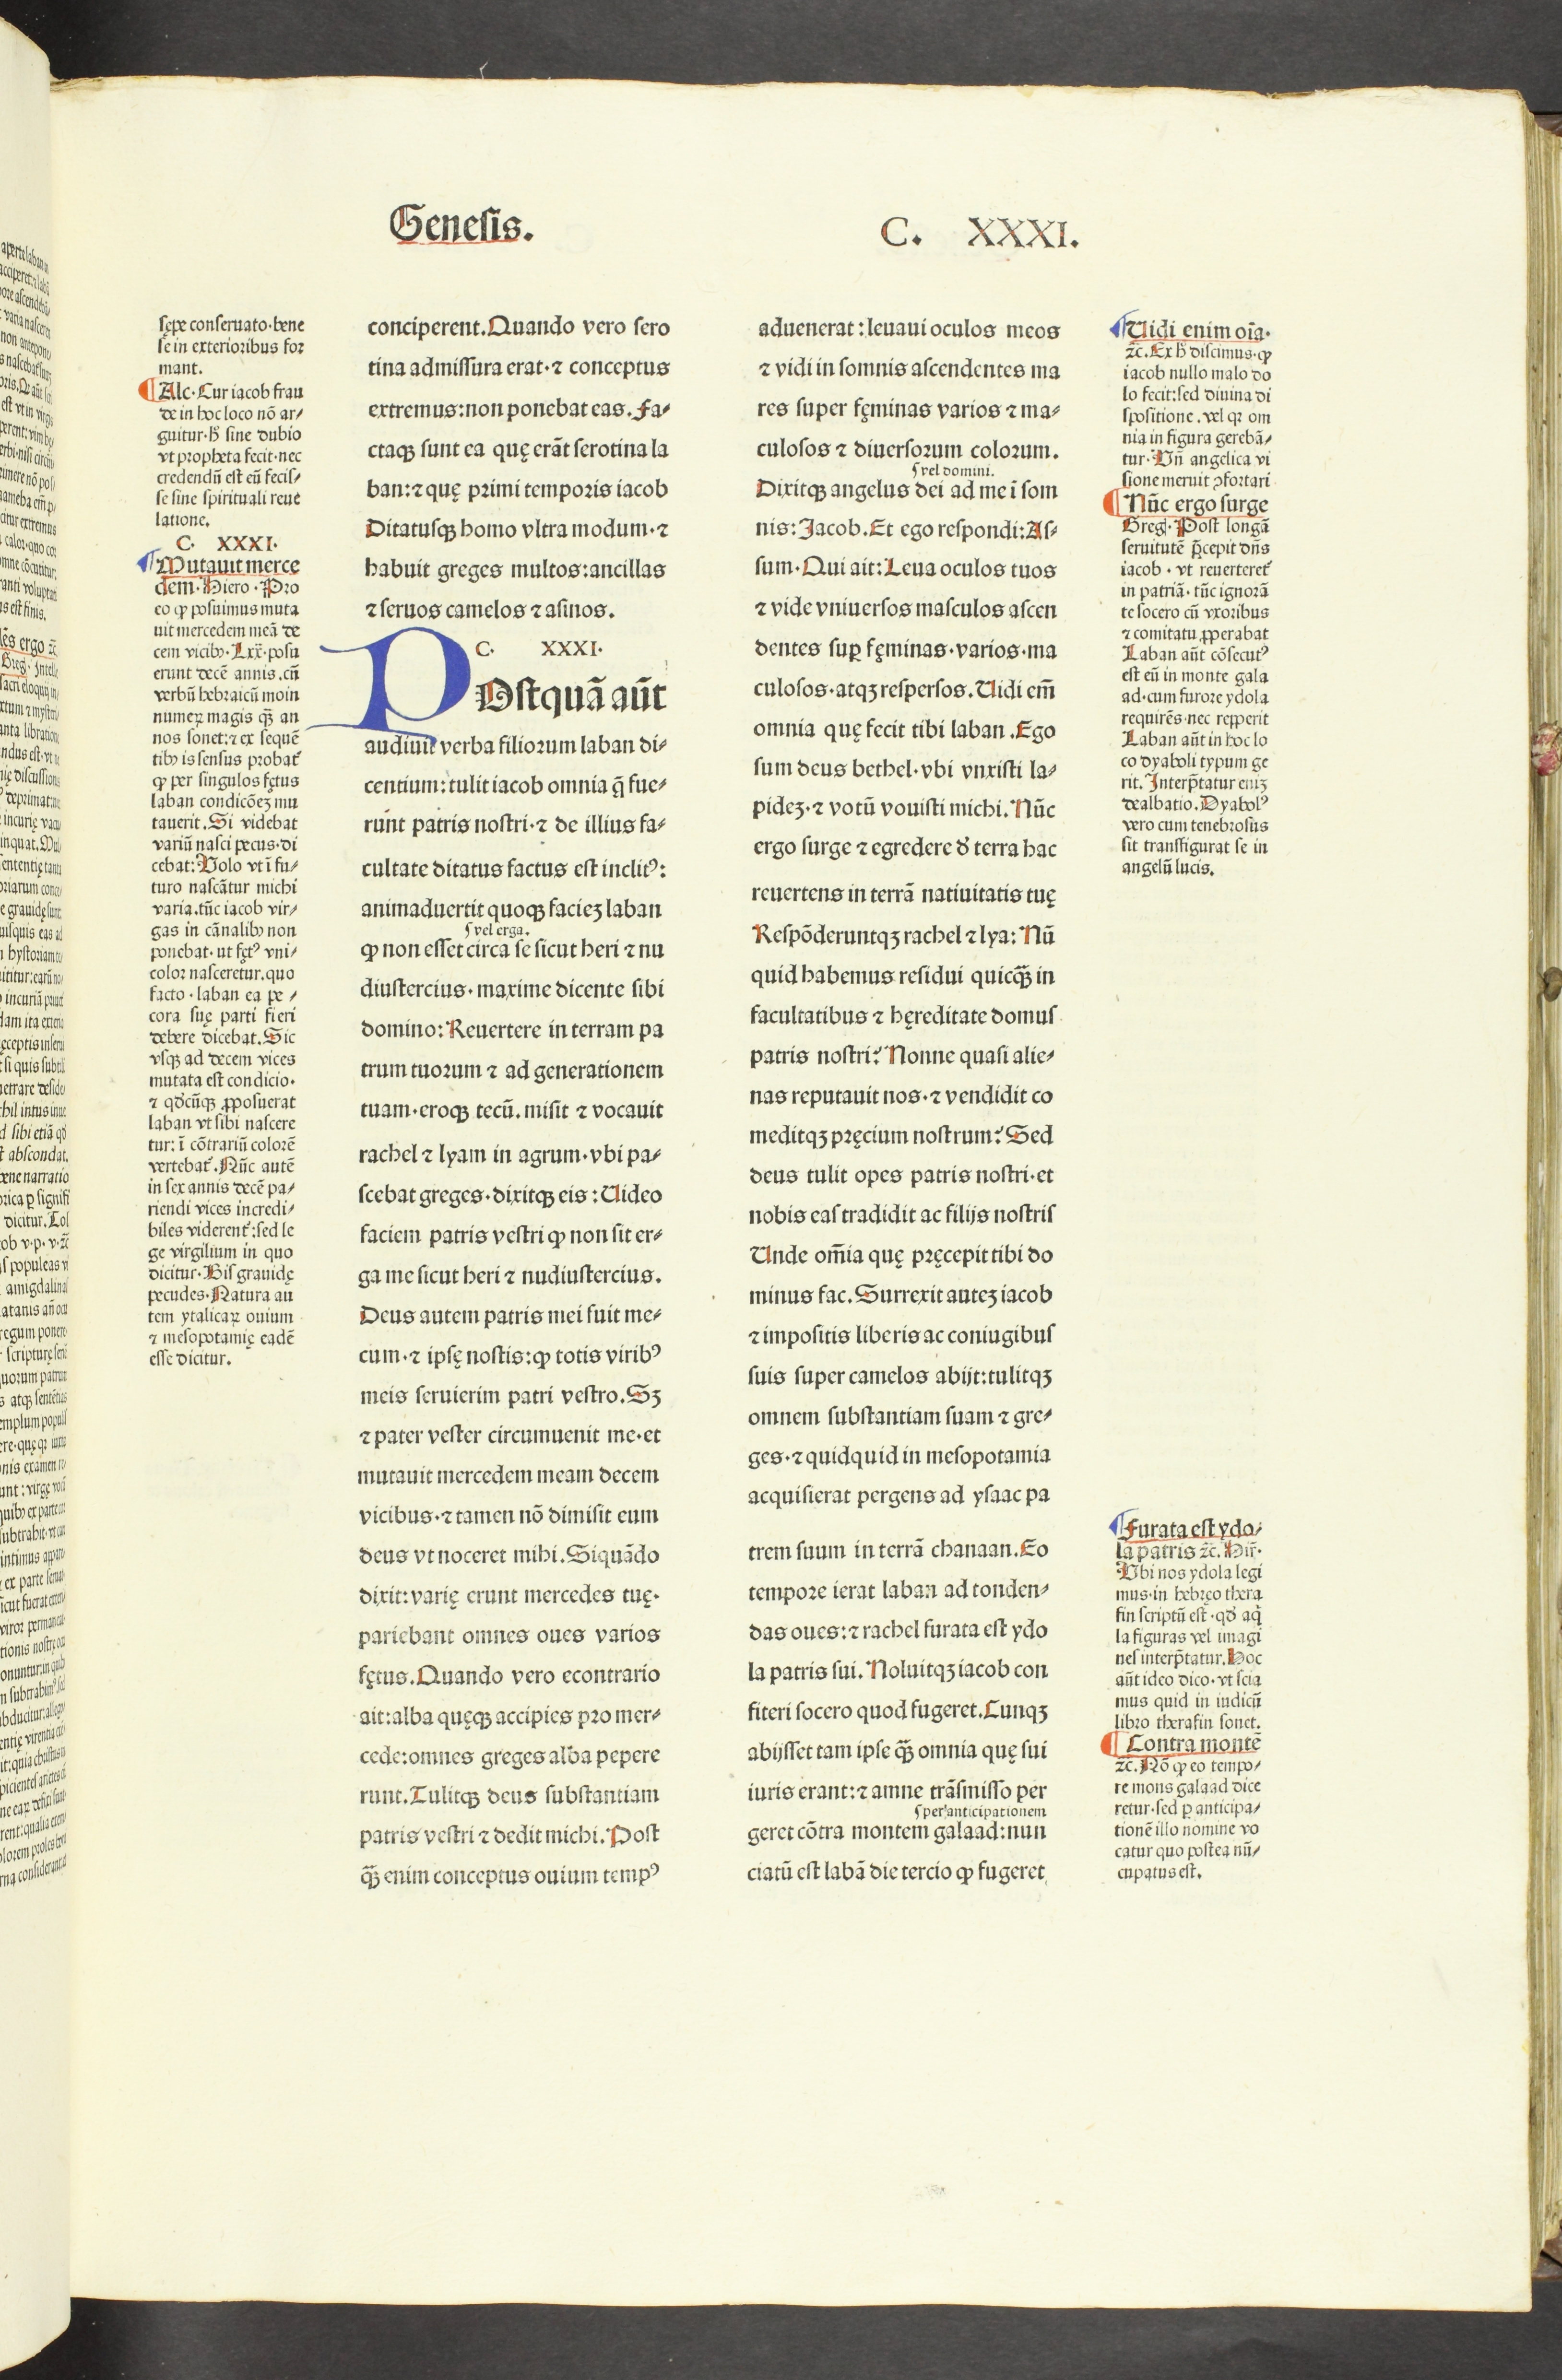 Genesis.
C. XXXI.
sępe conseruato·bene
se in exterioribus for
mant.
Alc·Cur iacob frau
de in hoc loco nō ar⸗
guitur·h̄ sine dubio
vt propheta fecit·nec
credendū est eū fecis⸗
se sine spirituali reue
latione.
C. XXXI.
Mutauit merce
dem·Hiero·Pro
eo ꝙ posuimus muta
uit mercedem meā de
cem vicibꝰ·Lxx̄·posu
erunt decē annis.cū
verbū hebraicū moin
numeꝝ magis ꝙ̄ an
nos sonet:⁊ ex sequē
tibꝰ is sensus probat᷑
ꝙ per singulos fętus
laban condicōeꝫ mu
tauerit.Si videbat
variū nasci pecus·di
cebat:Volo vt ī fu⸗
turo nascātur michi
varia.tūc iacob vir⸗
gas in cānalibꝰ non
ponebat·ut fętꝰ vni⸗
color nasceretur.quo
facto·laban ea pe⸗
cora suę parti fieri
debere dicebat.Sic
vsqꝫ ad decem vices
mutata est condicio·
⁊ qd̄cūqꝫ ꝓposuerat
laban vt sibi nascere
tur:ī cōtrariū colorē
vertebat᷑.Nūc autē
in sex annis decē pa⸗
riendi vices incredi⸗
biles viderent᷑:sed le
ge virgilium in quo
dicitur·Bis grauidę
pecudes·Natura au
tem ytalicaꝝ ouium
⁊ mesopotamię eadē
esse dicitur.
conciperent.Quando vero sero
tina admissura erat·⁊ conceptus
extremus:non ponebat eas.Fa⸗
ctaqꝫ sunt ea quę erāt serotina la
ban:⁊ quę primi temporis iacob
Ditatusqꝫ homo vltra modum·⁊
habuit greges multos:ancillas
⁊ seruos camelos ⁊ asinos.
C. XXXI·
POstquā aūt
audiuit verba filiorum laban di⸗
centium:tulit iacob omnia q̄ fue⸗
runt patris nostri·⁊ de illius fa⸗
cultate ditatus factus est inclitꝰ:
animaduertit quoqꝫ facieꝫ laban
ʃ vel erga.
ꝙ non esset circa se sicut heri ⁊ nu
diustercius·maxime dicente sibi
domino:Reuertere in terram pa
trum tuorum ⁊ ad generationem
tuam·eroqꝫ tecū.misit ⁊ vocauit
rachel ⁊ lyam in agrum·vbi pa⸗
scebat greges·dixitqꝫ eis:Uideo
faciem patris vestri ꝙ non sit er⸗
ga me sicut heri ⁊ nudiustercius.
Deus autem patris mei fuit me⸗
cum·⁊ ipsę nostis:ꝙ totis viribꝰ
meis seruierim patri vestro.Sꝫ
⁊ pater vester circumuenit me·et
mutauit mercedem meam decem
vicibus·⁊ tamen nō dimisit eum
deus vt noceret mihi.Siquādo
dixit:varię erunt mercedes tuę·
pariebant omnes oues varios
fętus.Quando vero econtrario
ait:alba quęqꝫ accipies pro mer⸗
cede:omnes greges alba pepere
runt.Tulitqꝫ deus substantiam
patris vestri ⁊ dedit michi.Post
ꝙ̄ enim conceptus ouium tempꝰ
aduenerat:leuaui oculos meos
⁊ vidi in somnis ascendentes ma
res super fęminas varios ⁊ ma⸗
culosos ⁊ diuersorum colorum.
ʃ vel domini.
Dixitqꝫ angelus dei ad me ī som
nis:Jacob.Et ego respondi:As⸗
sum·Qui ait:Leua oculos tuos
⁊ vide vniuersos masculos ascen
dentes suꝑ fęminas·varios·ma
culosos·atqꝫ respersos.Uidi em̄
omnia quę fecit tibi laban.Ego
sum deus bethel·vbi vnxisti la⸗
pideꝫ·⁊ votū vouisti michi.Nūc
ergo surge ⁊ egredere đ terra hac
reuertens in terrā natiuitatis tuę
Respōderuntqꝫ rachel ⁊ lya:Nū
quid habemus residui quicꝙ̄ in
facultatibus ⁊ hęreditate domus
patris nostri?Nonne quasi alie⸗
nas reputauit nos·⁊ vendidit co
meditqꝫ pręcium nostrum?Sed
deus tulit opes patris nostri·et
nobis eas tradidit ac filijs nostris
Unde om̄ia quę pręcepit tibi do
minus fac.Surrexit auteꝫ iacob
⁊ impositis liberis ac coniugibus
suis super camelos abijt:tulitqꝫ
omnem substantiam suam ⁊ gre⸗
ges·⁊ quidquid in mesopotamia
acquisierat pergens ad ysaac pa
trem suum in terrā chanaan.Eo
tempore ierat laban ad tonden⸗
das oues:⁊ rachel furata est ydo
la patris sui.Noluitqꝫ iacob con
fiteri socero quod fugeret.Cunqꝫ
abijsset tam ipse ꝙ̄ omnia quę sui
iuris erant:⁊ amne trāsmisso per
ʃ per anticipationem
geret cōtra montem galaad:nun
ciatū est labā die tercio ꝙ fugeret
Uidi enim oīa·
⁊c̄.Ex h̄ discimus·ꝙ
iacob nullo malo do
lo fecit:sed diuina di
spositione.vel qꝛ om
nia in figura gerebā⸗
tur·Vn̄ angelica vi
sione meruit ꝯfortari
Nūc ergo surge
Greg·Post longā
seruitutē p̄cepit dn̄s
iacob·vt reuerteret᷑
in patriā·tūc ignorā
te socero cū vxoribus
⁊ comitatu ꝓperabat
Laban aūt cōsecutꝰ
est eū in monte gala
ad·cum furore ydola
requirēs·nec reꝑperit
Laban aūt in hoc lo
co dyaboli typum ge
rit.Interp̄tatur eniꝫ
dealbatio.Dyabolꝰ
vero cum tenebrosus
sit transfigurat se in
angelū lucis.
Furata est ydo⸗
la patris ⁊c̄.Hir̄·
Vbi nos ydola legi
mus·in hebręo thera
fin scriptū est·qd̄ aq̇
la figuras vel imagi
nes interp̄tatur.Hoc
aūt ideo dico·vt scia
mus quid in iudicū
libro therafin sonet.
Contra montē
⁊c̄.Nō ꝙ eo tempo⸗
re mons galaad dice
retur·sed ꝑ anticipa⸗
tionē illo nomine vo
catur quo postea nū⸗
cupatus est.